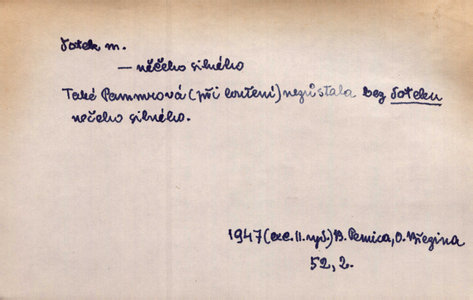 dotek m.
— něčeho silného
Také Pammrová (při loučení) nezůstala bez doteku
něčeho silného.
1947 (exc. II. vyd.) B. Pernica, O. Březina
52, 2.